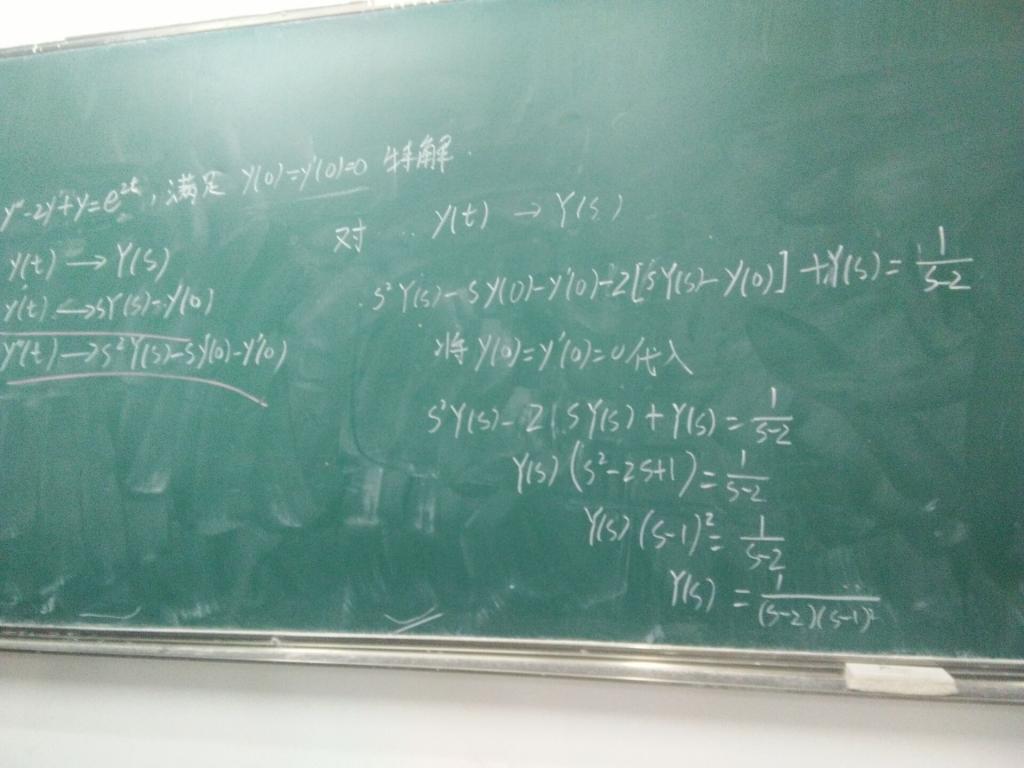 y"-2y'+y=e^{2t}, 满足 y(0)=y'(0)=0 特解.
y(t) → Y(s)
y'(t) ↔ sY(s)-y(0)
y"(t) → s²Y(s)-sy(0)-y'(0)
对 .. y(t) → Y(s)
s²Y(s)-sy(0)-y'(0)-2[sY(s)-y(0)]+Y(s)=\frac{1}{s-2}
将 y(0)=y'(0)=0代入
s²Y(s)-2(sY(s)+Y(s)=\frac{1}{s-2}
Y(s)(s²-2s+1)=\frac{1}{s-2}
Y(s)(s-1)²=\frac{1}{s-2}
Y(s)=\frac{1}{(s-2)(s-1)²}